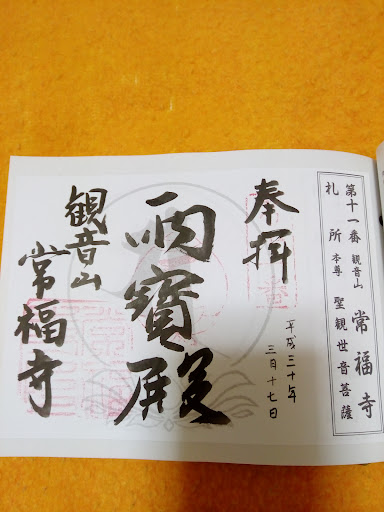 第十一番 観音山 常福寺
札所 本尊 聖観世音菩薩
奉拝
平成三十年
三月十七日
雨寶殿
観音山
常福寺